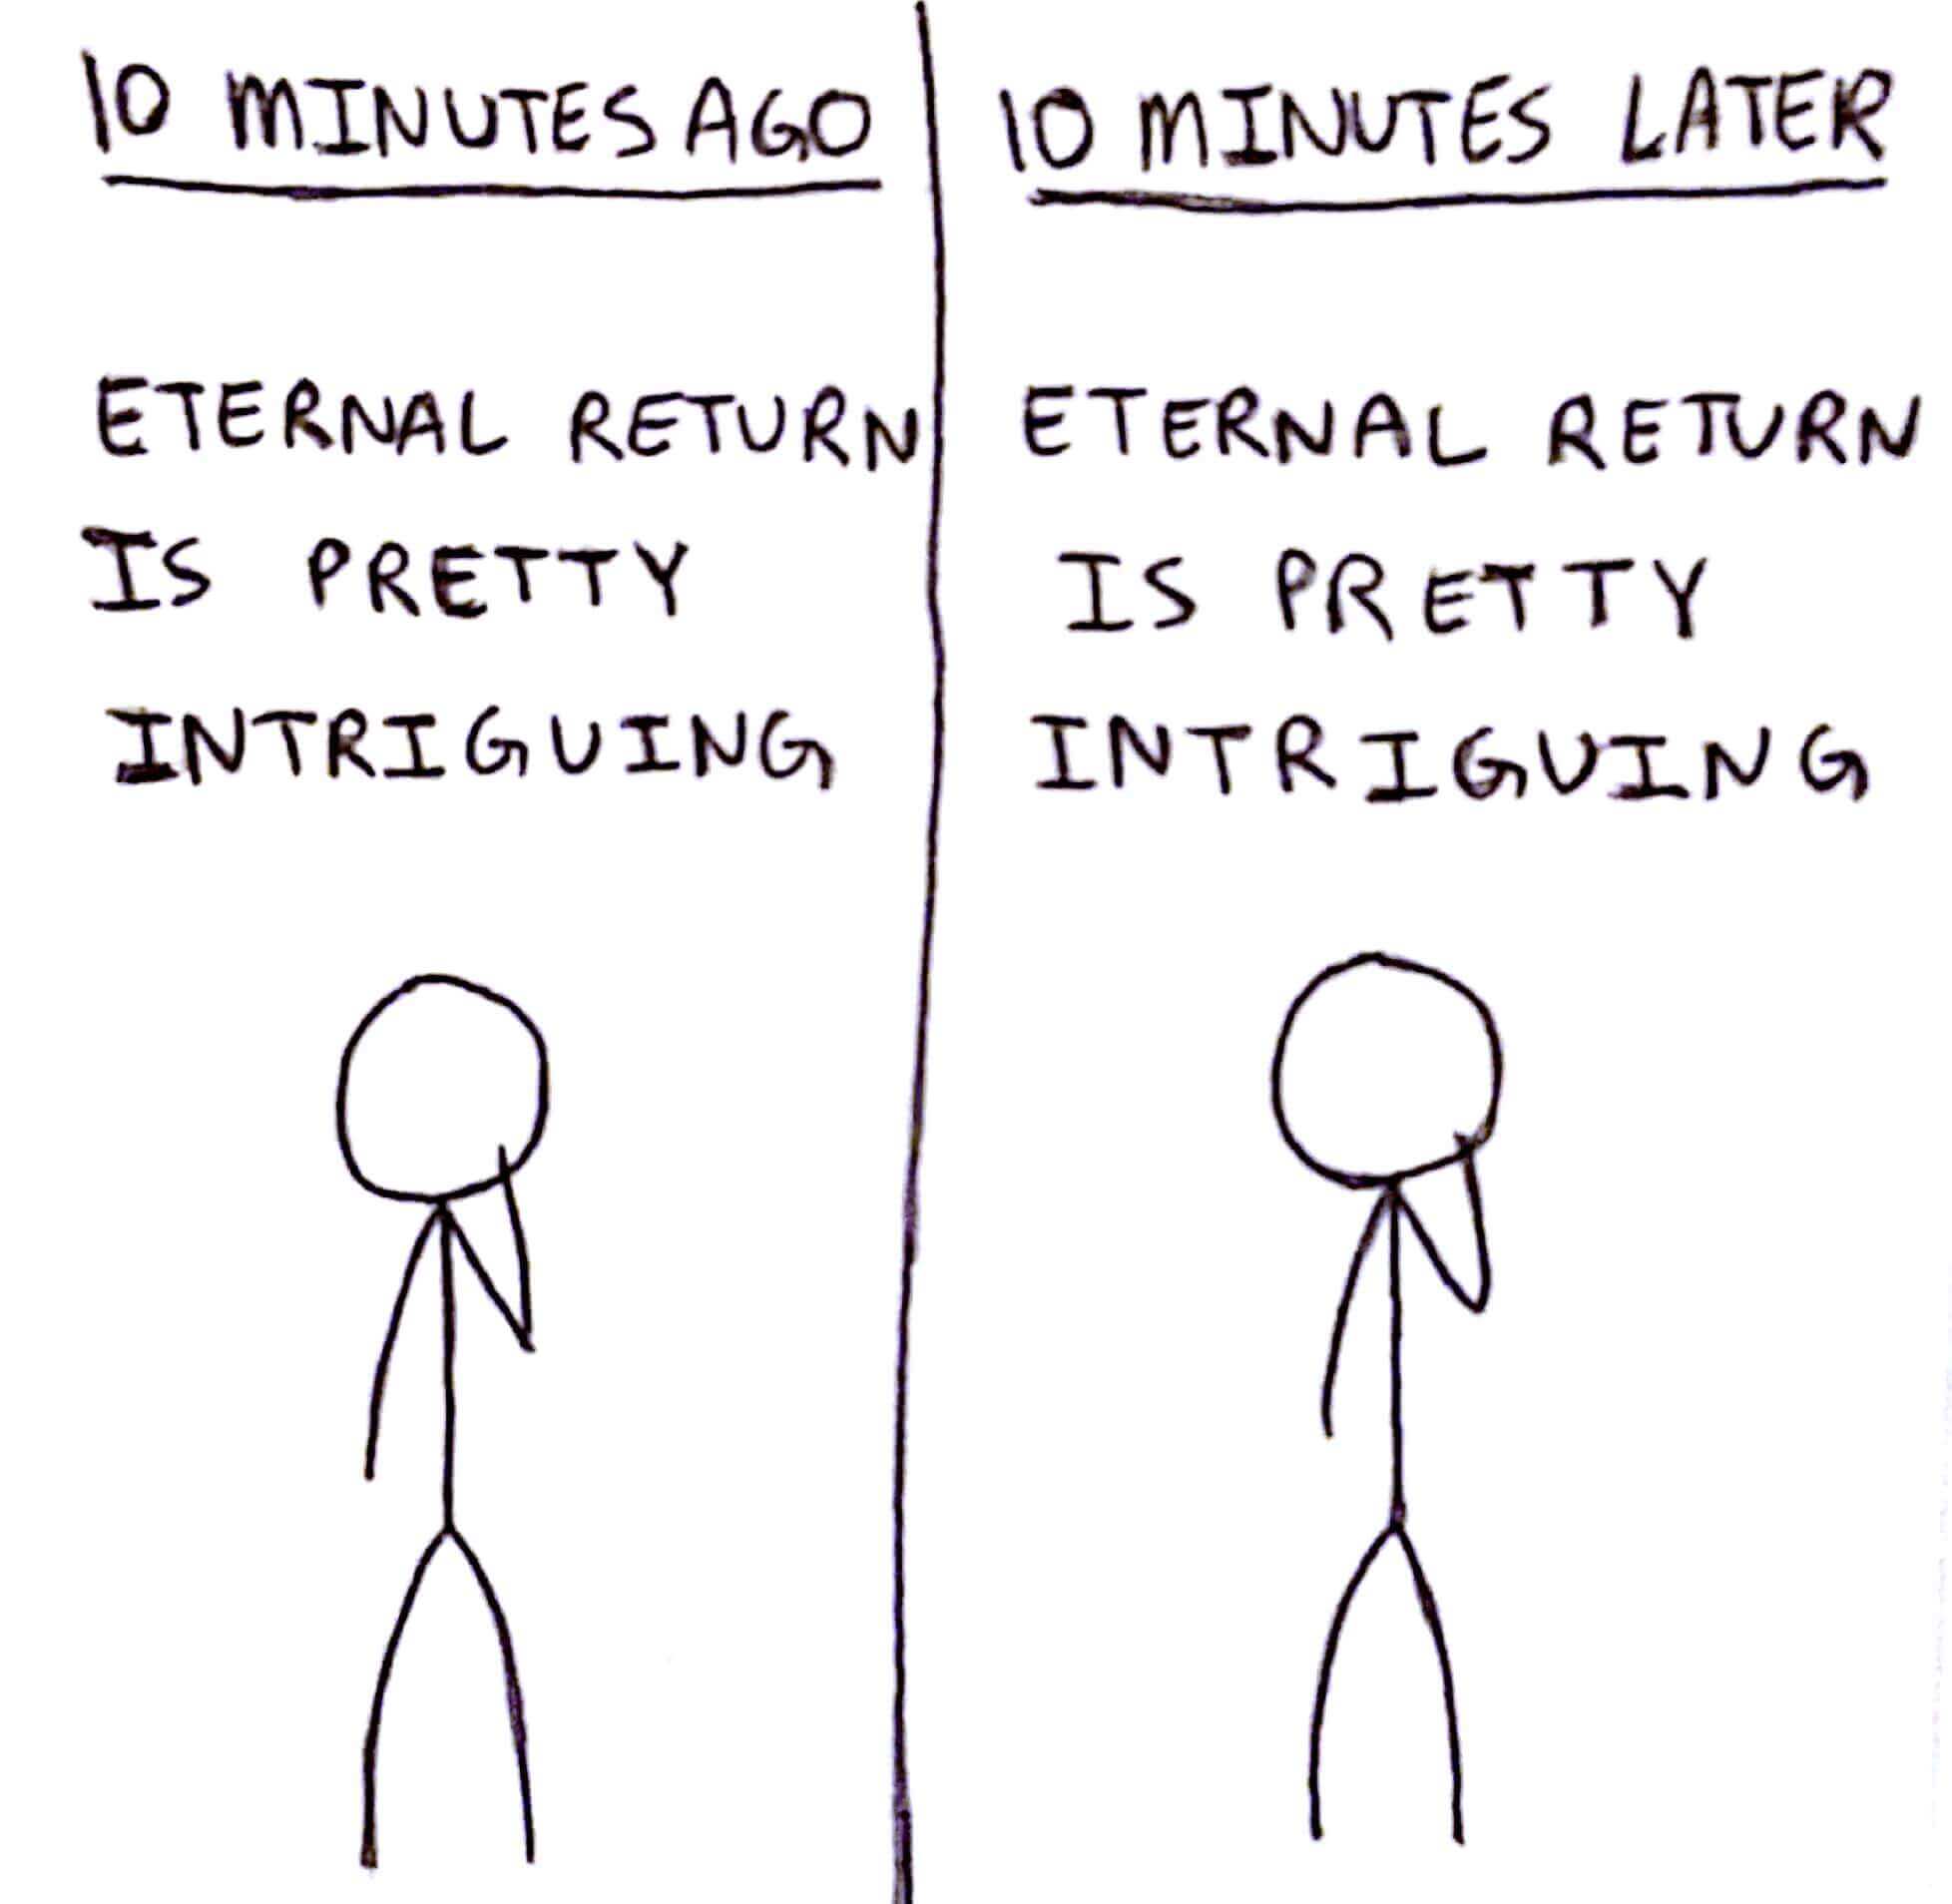 10 MINUTES AGO
ETERNAL RETURN
IS PRETTY
INTRIGUING
10 MINUTES LATER
ETERNAL RETURN
IS PRETTY
INTRIGUING